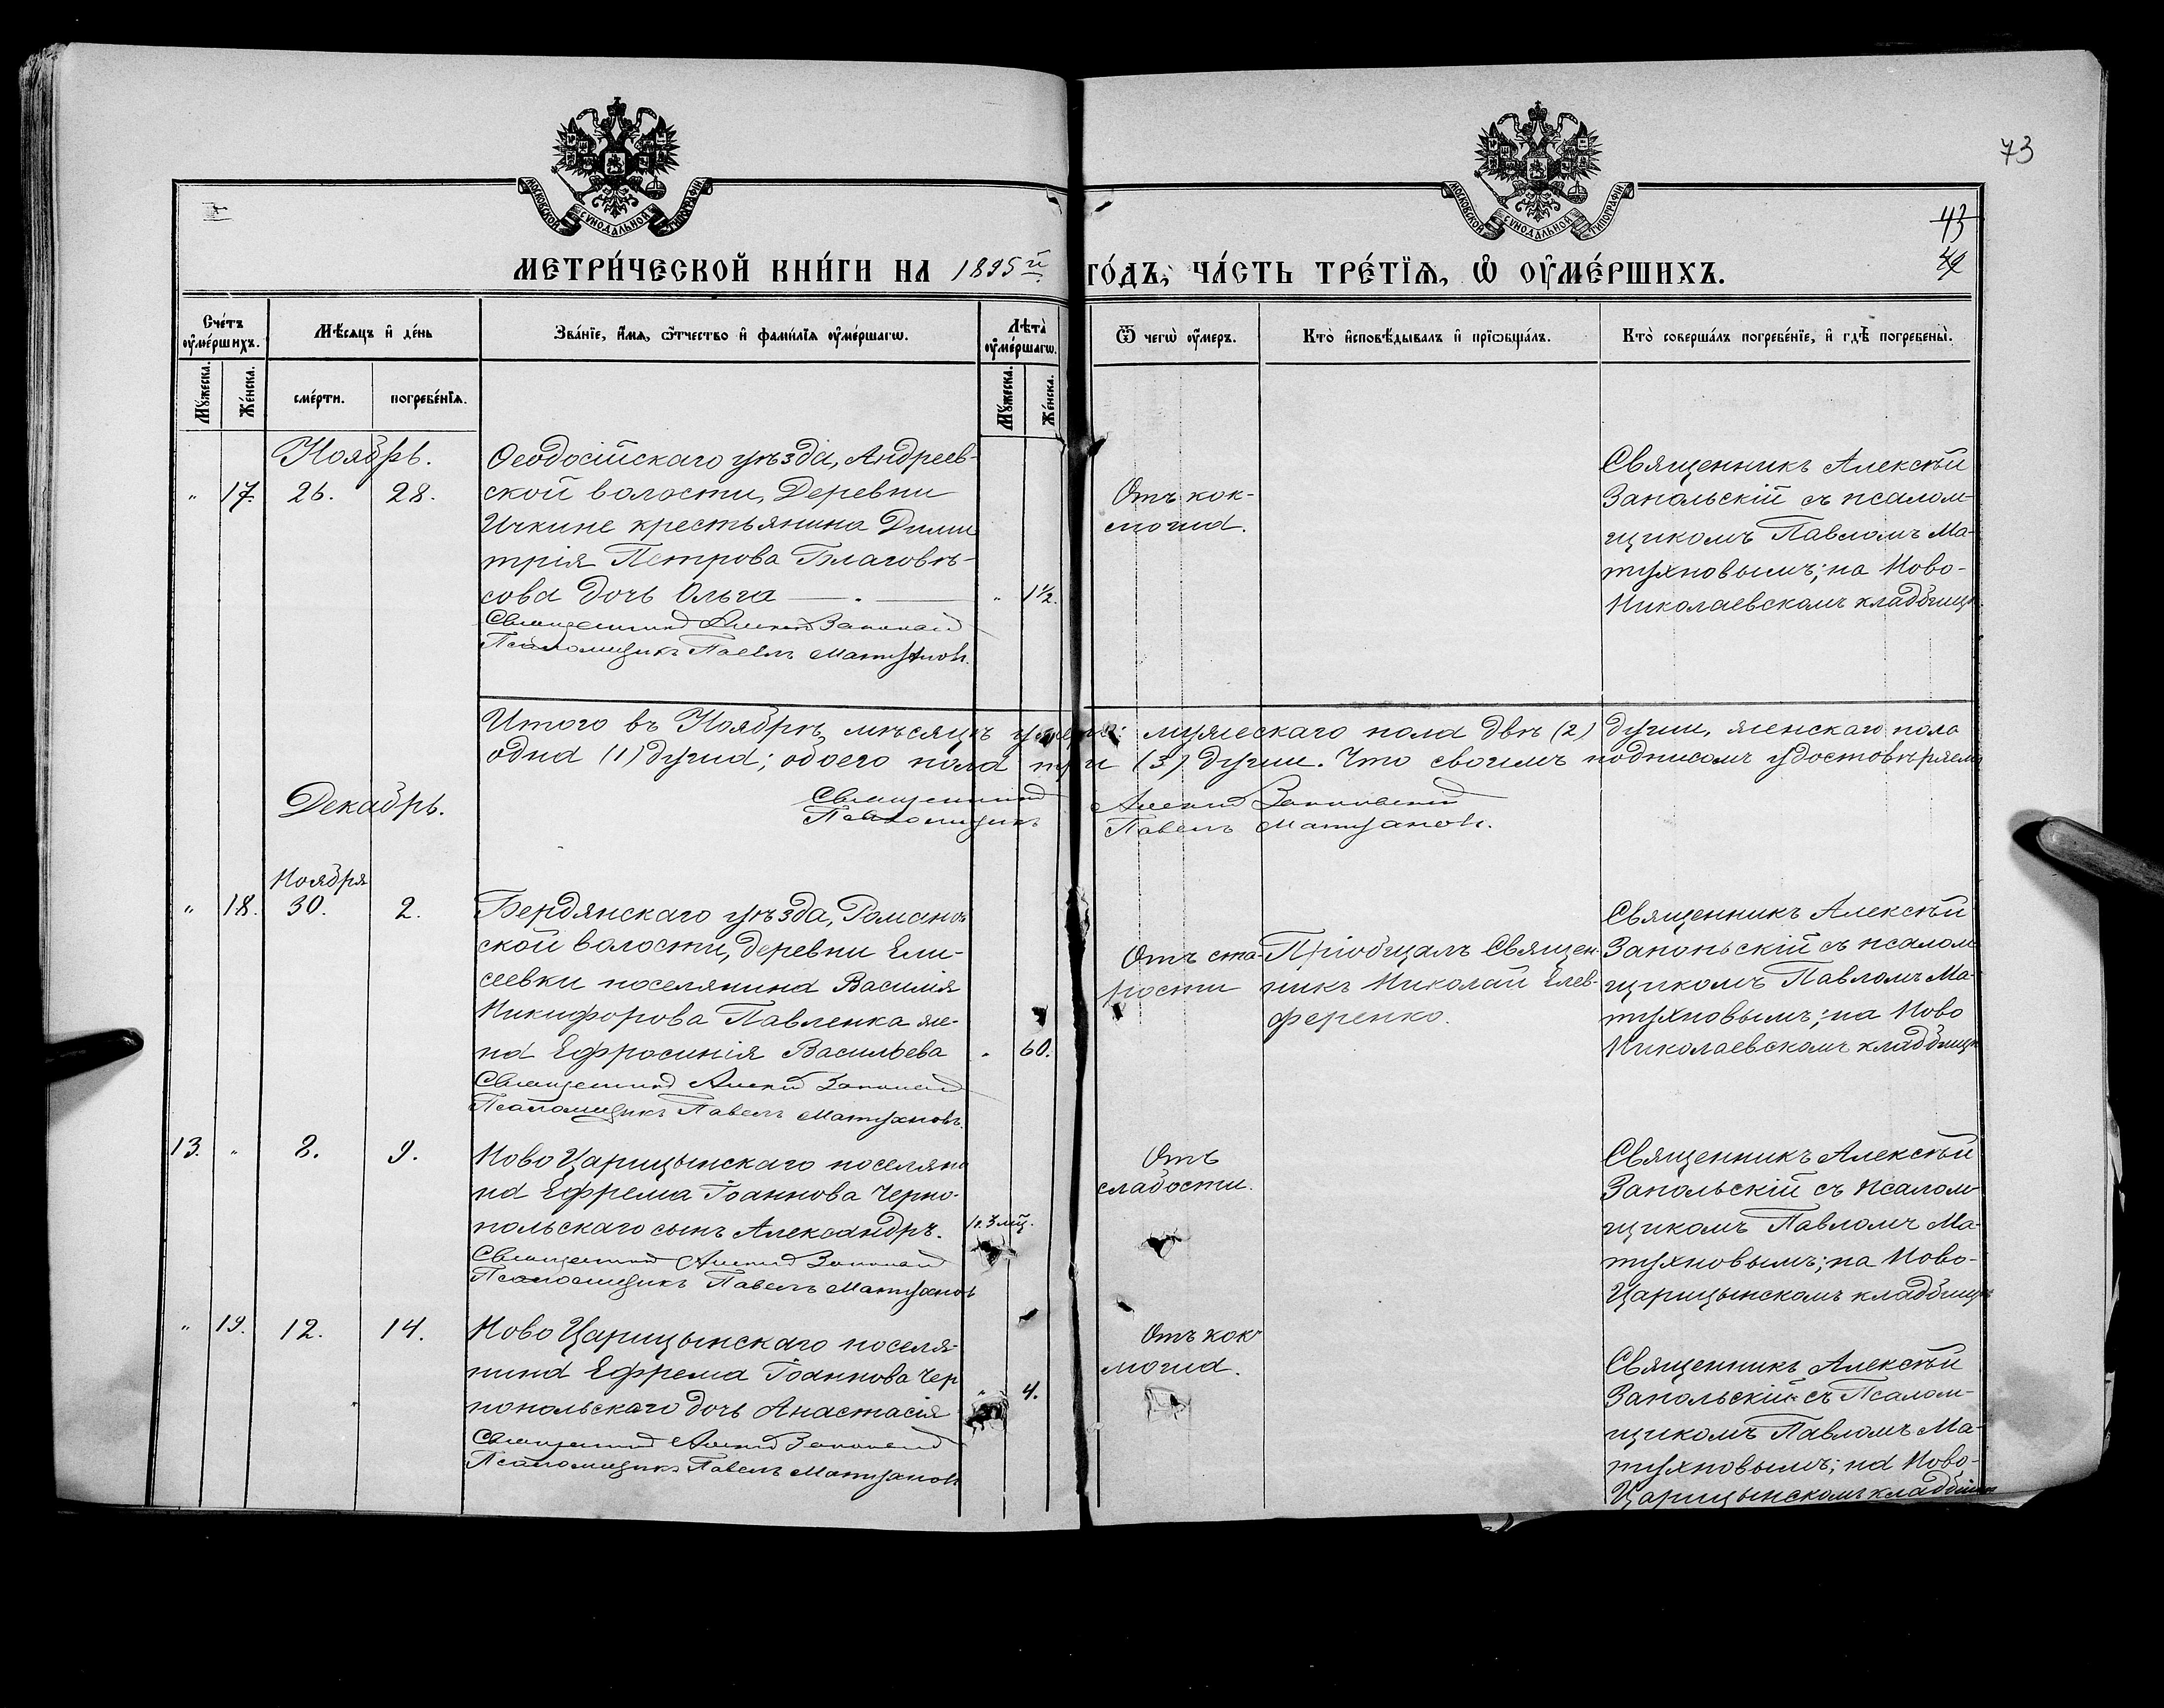 73
МОСКОВСКОЙ СУНОДАЛЬНОЙ ТИПОГРАФІИ
МОСКОВСКОЙ СУНОДАЛЬНОЙ ТИПОГРАФІИ
43
МЕТРИ́ЧЕСКОЙ КНИ́ГИ НА 1895й ГО́ДЪ, ЧА́СТЬ ТРЕ́ТЇѦ, Ѡ ОУ҆МЕ́РШИХЪ.
Сче́тъ оу҆ме́ршихъ.
Мꙋ́жеска.
Же́нска.
Мѣ́сяцъ и҆ де́нь
сме́рти.
погребе́нїѧ.
Зва́нїе, и҆́мѧ, ѻ҆́тчество и҆ фами́лїѧ оу҆ме́ршагѡ.
Лѣ́та оу҆ме́ршагѡ.
Мꙋ́жеска.
Же́нска.
Ѿ чегѡ̀ оу҆́меръ.
Кто̀ и҆сповѣ́дывалъ и҆ прїѡбща́лъ.
Кто̀ соверша́лъ погребе́нїе, и҆ гдѣ̀ погребены̀.
Ноябрь.
" 17. 26. 28.
Ѳеодосійскаго уѣзда, Андреев-
ской волости, Деревни
Ичкине крестьянина Дими
трія Петрова Благовѣ-
сова дочь Ольга — . —
" 1½.
Священникъ Алексій Запольскій
Псаломщикъ Павелъ Матухновъ.
Отъ кок-
люша.
Священникъ Алексѣй
Запольскій съ псалом-
щикомъ Павломъ Ма-
тухновымъ; на Ново-
Николаевскомъ кладбищѣ.
Итого въ Ноябрѣ мѣсяцѣ умерло: мужескаго пола двѣ (2) души, женскаго пола
одна (1) душа; обоего пола три (3) души. Что своимъ подписомъ удостовѣряемъ
Священникъ Алексій Запольскій
Псаломщикъ Павелъ Матухновъ.
Декабрь.
Ноября
" 18. 30. 2.
Бердянскаго уѣзда, Романов
ской волости, деревни Ели-
сеевки поселянина Василія
Никифорова Павленка же-
на Ефросинія Васильева
" 60.
Священникъ Алексій Запольскій
Псаломщикъ Павелъ Матухновъ.
Отъ ста-
рости
Пріобщалъ Священ-
никъ Николай Елев-
ференко.
Священникъ Алексѣй
Запольскій съ псалом
щикомъ Павломъ Ма-
тухновымъ; на Ново
Николаевскомъ кладбищѣ
13. " 8. 9.
Ново Царицынскаго поселяни
на Ефрема Іоаннова Черно-
польскаго сынъ Александръ.
1г. 3 мц.
Священникъ Алексій Запольскій
Псаломщикъ Павелъ Матухновъ
Отъ
слабости.
Священникъ Алексѣй
Запольскій съ Псалом-
щикомъ Павломъ Ма-
тухновымъ; на Ново-
Царицынскомъ кладбищѣ
" 19. 12. 14.
Ново Царицынскаго поселя-
нина Ефрема Іоаннова Чер
нопольскаго дочь Анастасія
" 4.
Священникъ Алексій Запольскій
Псаломщикъ Павелъ Матухновъ
Отъ кок-
люша.
Священникъ Алексѣй
Запольскій съ Псалом-
щикомъ Павломъ Ма-
тухновымъ; на Ново-
Царицынскомъ кладбищѣ